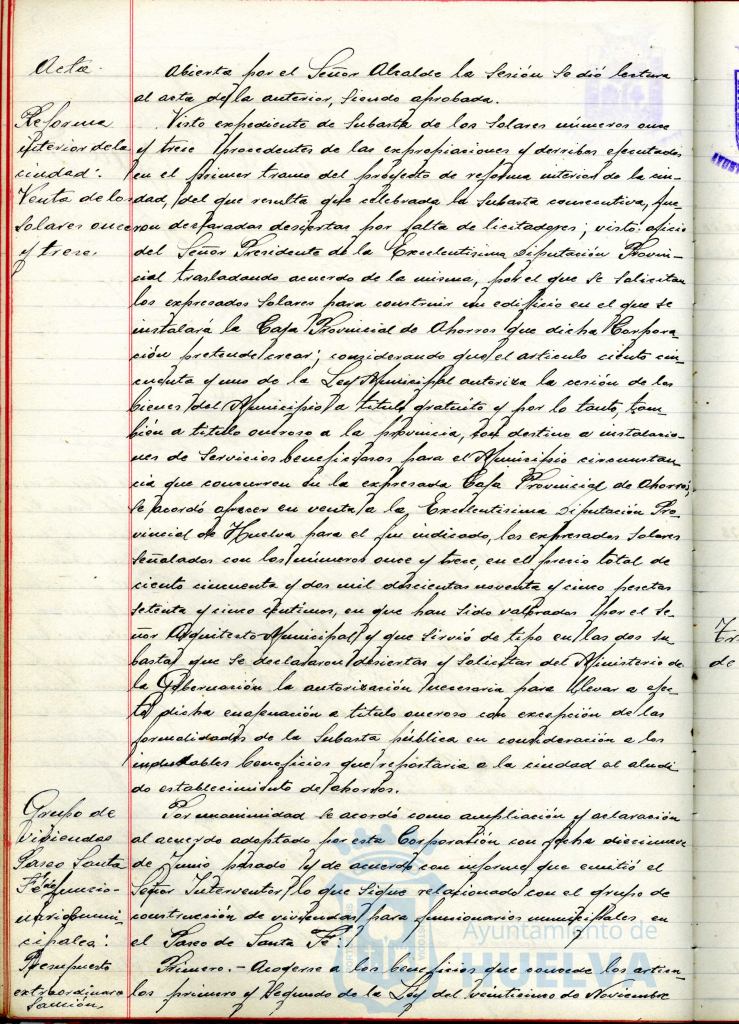 Acta.
Abierta por el Señor Alcalde la Sesión se dió lectura
al acta de la anterior, siendo aprobada.
Reforma
interior de la
ciudad:
Venta de los
solares once
y trece.
Visto expediente de Subasta de los Solares números once
y trece procedentes de las expropiaciones y derribos ejecutados
en el primer tramo del proyecto de reforma interior de la ciu-
dad, del que resulta que celebrada la Subasta consecutiva, fue
ron declaradas desiertas por falta de licitadores; visto oficio
del Señor Presidente de la Excelentísima Diputación Provin-
cial trasladando acuerdo de la misma, por el que se solicitan
los expresados Solares para construir un edificio en el que se
instalará la Caja Provincial de Ahorros que dicha Corpora-
ción pretende crear; considerando que el articulo ciento cin-
cuenta y uno de la Ley Municipal autoriza la cesión de los
bienes del Municipio a titulo gratuito y por lo tanto, tam-
bién a titulo oneroso a la provincia, con destino a instalacio-
nes de Servicios beneficiosos para el Municipio circunstan-
cia que concurren en la expresada Caja Provincial de Ahorros,
se acordó ofrecer en venta a la Excelentísima Diputación Pro-
vincial de Huelva para el fin indicado, los expresados Solares
señalados con los números once y trece, en el precio total de
ciento cincuenta y dos mil doscientas noventa y cinco pesetas
setenta y cinco céntimos, en que han sido valorados por el Se-
ñor Arquitecto Municipal y que sirvió de tipo en las dos su-
bastas que se declararon desiertas y solicitar del Ministerio de
la Gobernación la autorización necesaria para llevar a efec-
to dicha enajenación a titulo oneroso con excepción de las
formalidades de la Subasta pública en consideración a los
indudables beneficios que reportaria a la ciudad el aludi
do establecimiento de ahorros.
Grupo de
Viviendas
Paseo Santa
Fé de funcio-
narios muni-
cipales:
Presupuesto
extraordinario
Sanción
Por unanimidad se acordó como ampliación y aclaración
al acuerdo adoptado por esta Corporación con fecha diecinueve
de Junio pasado y de acuerdo con informe que emitió el
Señor Interventor lo que sigue relacionado con el grupo de
construcción de viviendas para funcionarios municipales en
el Paseo de Santa Fé:
Primero.- Acogerse a los beneficios que concede los articu-
los primero y Segundo de la Ley del veinticinco de Noviembre
Ayuntamiento de
HUELVA